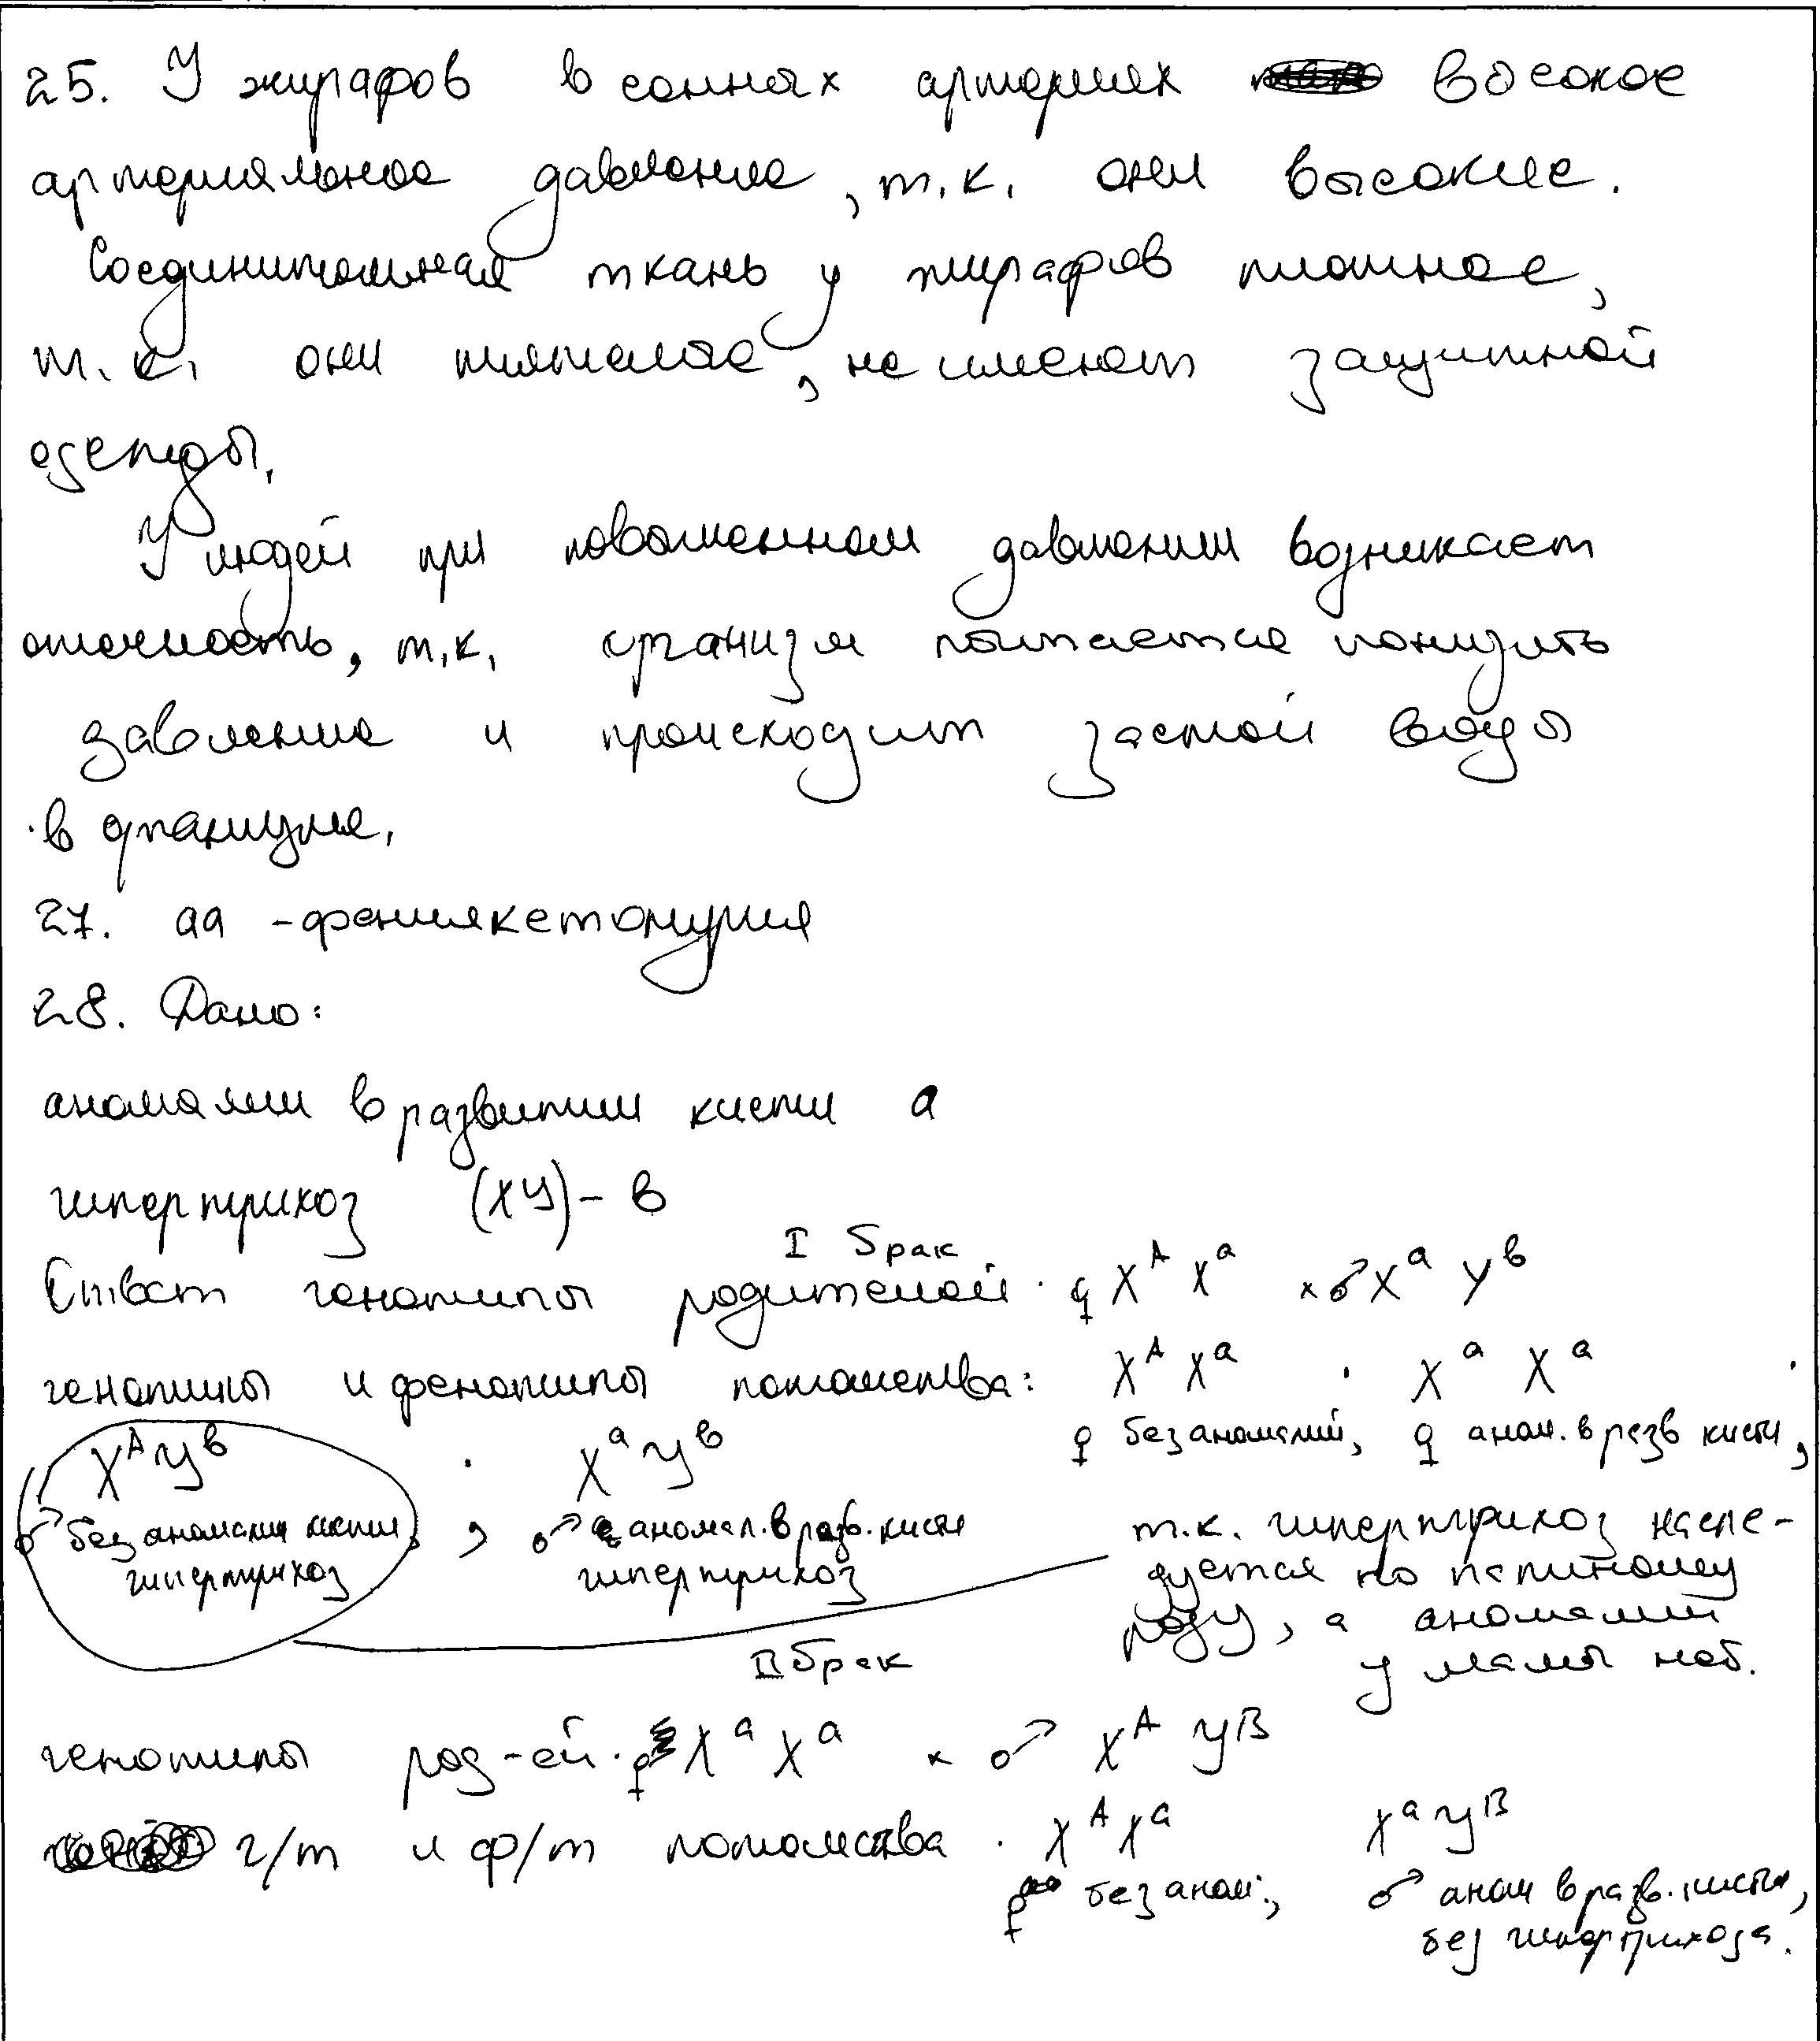 25. У жирафов в сонных артериях высокое
артерияльное давление, т.к. они высокие.
Соединительная ткань у жирафов плотное,
т.к. они тяжелые, не имеют защитной
одежды.
У людей при повышенном давлении возникает
отечность, т.к. организм пытается понизить
давление и происходит застой воды
в организме.
27. аа - фенилкетонурия
28. Дано:
аномалии в развитии кисти а
гипертрихоз (XY) - в
I брак
Ответ генотипы родителей: ♀ X^A X^a × ♂ X^a Y^в
генотипы и фенотипы потомства: X^A X^a . X^a X^a .
♀ без аномалий, ♀ аном. в разв кисти,
X^A Y^в . X^a Y^в
♂ без аномалии кисти, гипертрихоз , ♂ аномал. в разв. кисти гипертрихоз
т.к. гипертрихоз насле-
дуется по папиному
роду, а аномалии
у мамы
II брак
генотипы род-ей: ♀ X^a X^a × ♂ X^A Y^B
г/т и ф/т потомства . X^A X^a X^a Y^B
♀ без аном., ♂ аном в разв. кисти,
без гипертрихоза.